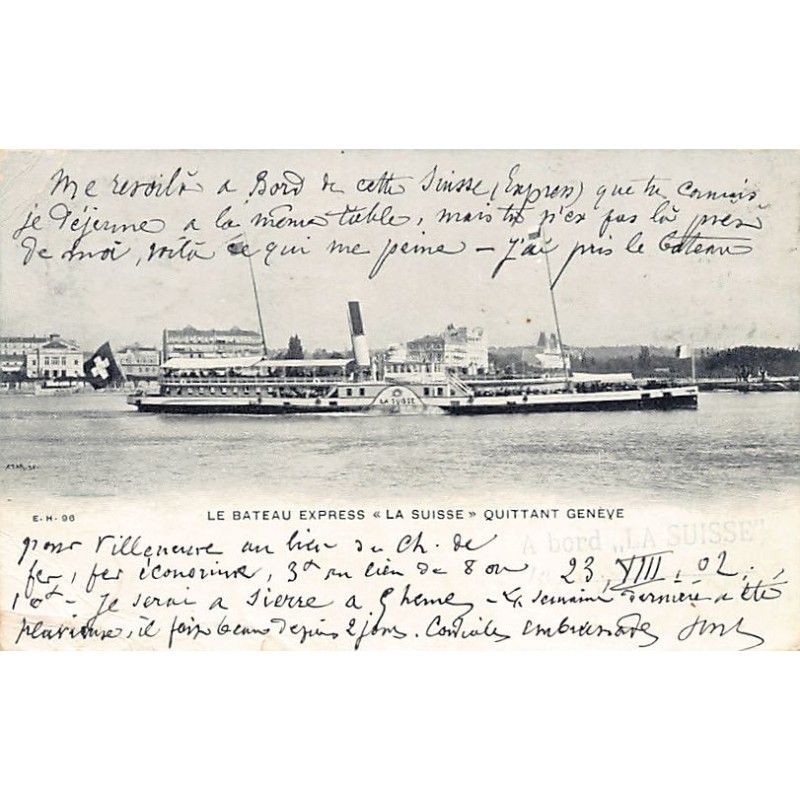 Me revoilà a Bord de cette Suisse (Express) que tu connais
je déjeune a la même table, mais tu n'es pas là près
de moi, voilà ce qui me peine – j'ai pris le bateau
LA SUISSE
E.-H- 96
LE BATEAU EXPRESS « LA SUISSE » QUITTANT GENÈVE
A bord „LA SUISSE"
pour Villeneuve au lieu du Ch. de
fer, économie, 3 au lieu de 8 ou
23, VIII. 02.
10 – Je serai a Sierre a 9 heures – La semaine dernière a été
pluvieuse, il fait beau depuis 2 jours. Cordiales embrassades